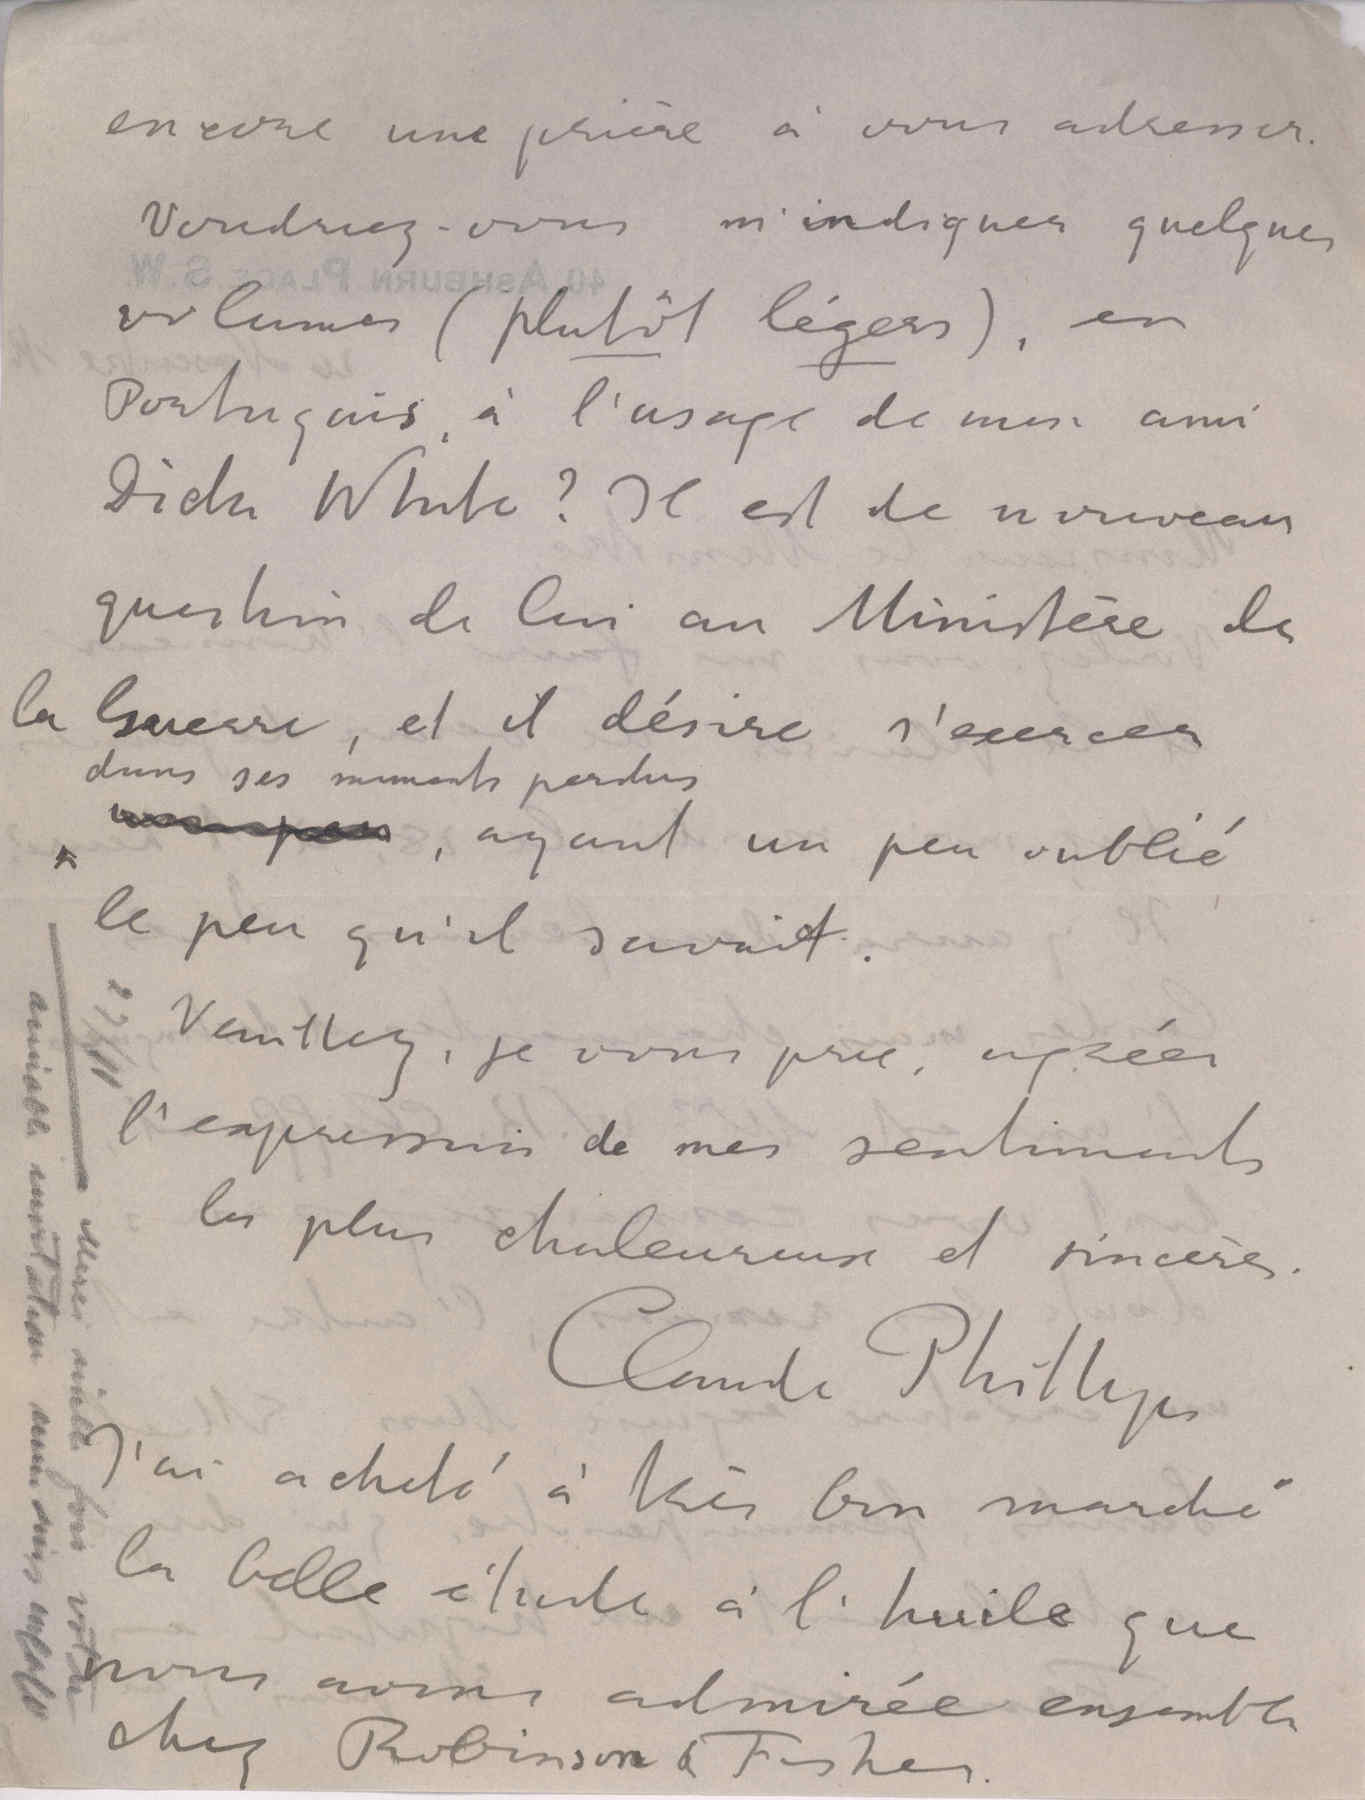 encore une prière à vous adresser.
Voudriez-vous m'indiquer quelques
volumes (plutôt légers), en
Portugais, à l'usage de mon ami
Dick White? Il est de nouveau
question de lui au Ministère de
la Guerre, et il désire s'exercer
dans ses moments perdus
, ayant un peu oublié
le peu qu'il savait.
Veuillez, je vous prie, agréer
l'expression de mes sentiments
les plus chaleureux et sincères.
Claude Phillips
J'ai acheté à très bon marché
la belle étude à l'huile que
nous avons admirée ensemble
chez Robinson & Fisher.
Merci mille fois votre
amiable invitation
40 ASHBURN PLACE S.W.